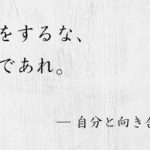 をするな、
であれ。
― 自分と向き合